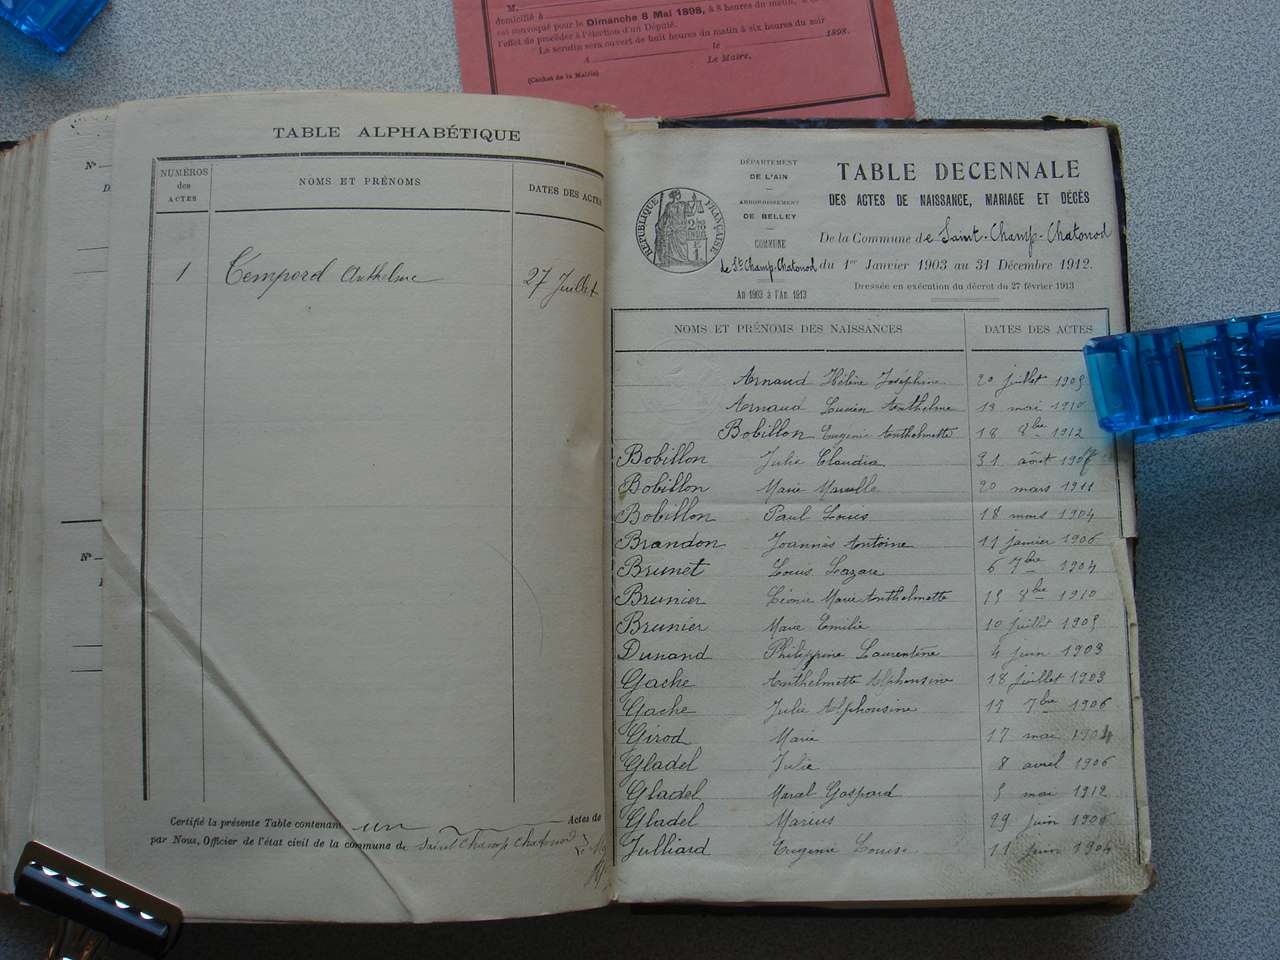 M.
domicilié à
est convoqué pour le Dimanche 8 Mai 1898, à 8 heures du matin, à
l'effet de procéder à l'élection d'un Député.
Le scrutin sera ouvert de huit heures du matin à six heures du soir
A le 1898.
Le Maire,
(Cachet de la Mairie)
N°
N°
TABLE ALPHABÉTIQUE
NUMÉROS des ACTES
NOMS ET PRÉNOMS
DATES DES ACTES
1 Tempord Anthelme 27 Juillet
Certifié la présente Table contenant un Actes de
par Nous, Officier de l'état civil de la commune de Saint Champ Chatonod
DÉPARTEMENT
DE L'AIN
ARRONDISSEMENT
DE BELLEY
COMMUNE
de St Champ-Chatonod
An 1903 à l'An 1913
RÉPUBLIQUE FRANÇAISE
TABLE DECENNALE
DES ACTES DE NAISSANCE, MARIAGE ET DÉCÈS
De la Commune de Saint-Champ-Chatonod
du 1er Janvier 1903 au 31 Décembre 1912.
Dressée en exécution du décret du 27 février 1913
NOMS ET PRÉNOMS DES NAISSANCES DATES DES ACTES
Arnaud Hélène Joséphine 20 juillet 1905
Arnaud Lucien Anthelme 19 mai 1910
Bobillon Eugenie Anthelmette 18 8bre 1912
Bobillon Julie Claudia 31 août 1907
Bobillon Marie Marcelle 20 mars 1911
Bobillon Paul Louis 18 mars 1904
Brandon Joannès Antoine 11 janvier 1906
Brunet Louis Lazare 6 7bre 1904
Brunier Léonie Marie Anthelmette 15 8bre 1910
Brunier Marie Emilie 10 juillet 1905
Dunand Philippine Laurentine 4 juin 1903
Gache Anthelmette Alphonsine 18 juillet 1903
Gache Julie Alphonsine 15 7bre 1906
Girod Marie 17 mai 1904
Gladel Julie 8 avril 1906
Gladel Marcel Gaspard 5 mai 1912
Gladel Marius 29 juin 1906
Julliard Eugenie Louise 11 juin 1904